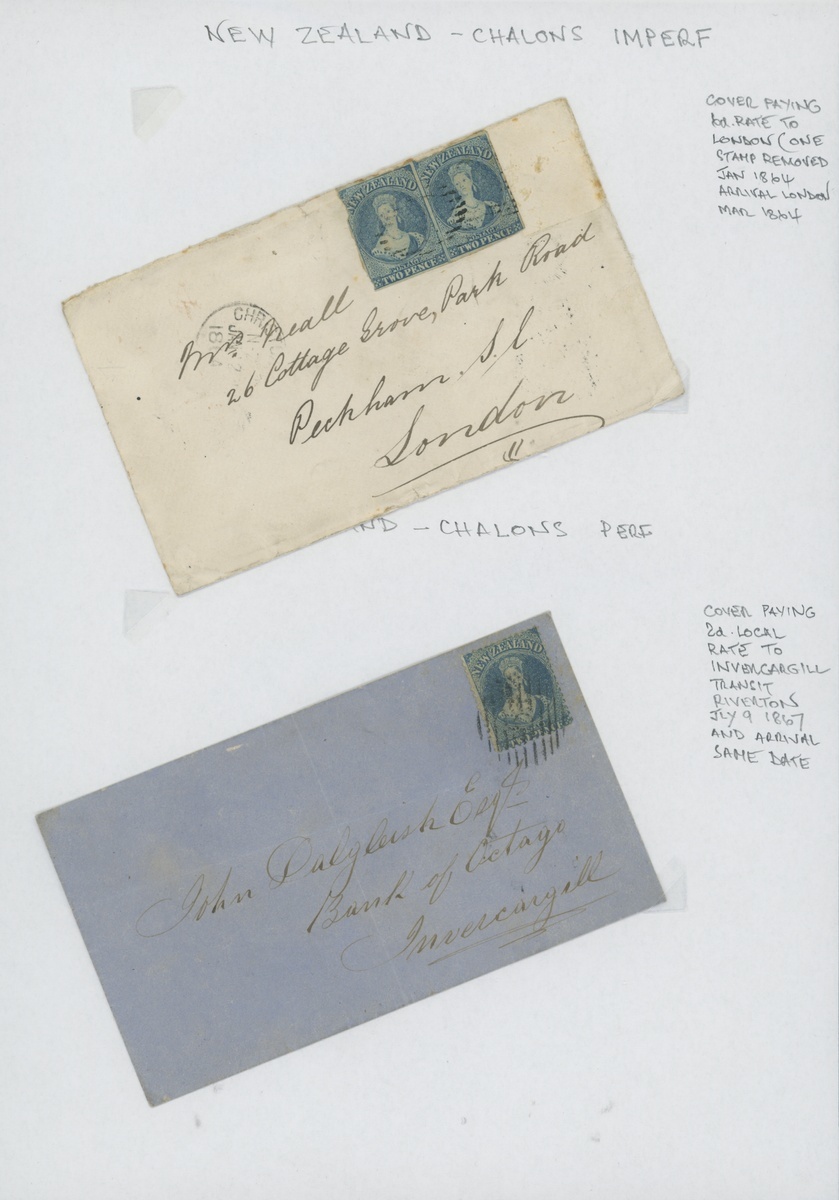 NEW ZEALAND - CHALONS IMPERF
COVER PAYING
6d. RATE TO
LONDON (ONE
STAMP REMOVED
JAN 1864
ARRIVAL LONDON
MAR 1864
NEW ZEALAND
NEW ZEALAND
POSTAGE
POSTAGE
TWO PENCE
TWO PENCE
CHR
Mrs. Neall
26 Cottage Grove, Park Road
Peckham. S.E.
London
AND - CHALONS PERF
COVER PAYING
2d. LOCAL
RATE TO
INVERCARGILL
TRANSIT
RIVERTON
JLY 9 1867
AND ARRIVAL
SAME DATE
NEW ZEALAND
John Dalgleish Esqr
Bank of Octago
Invercargill